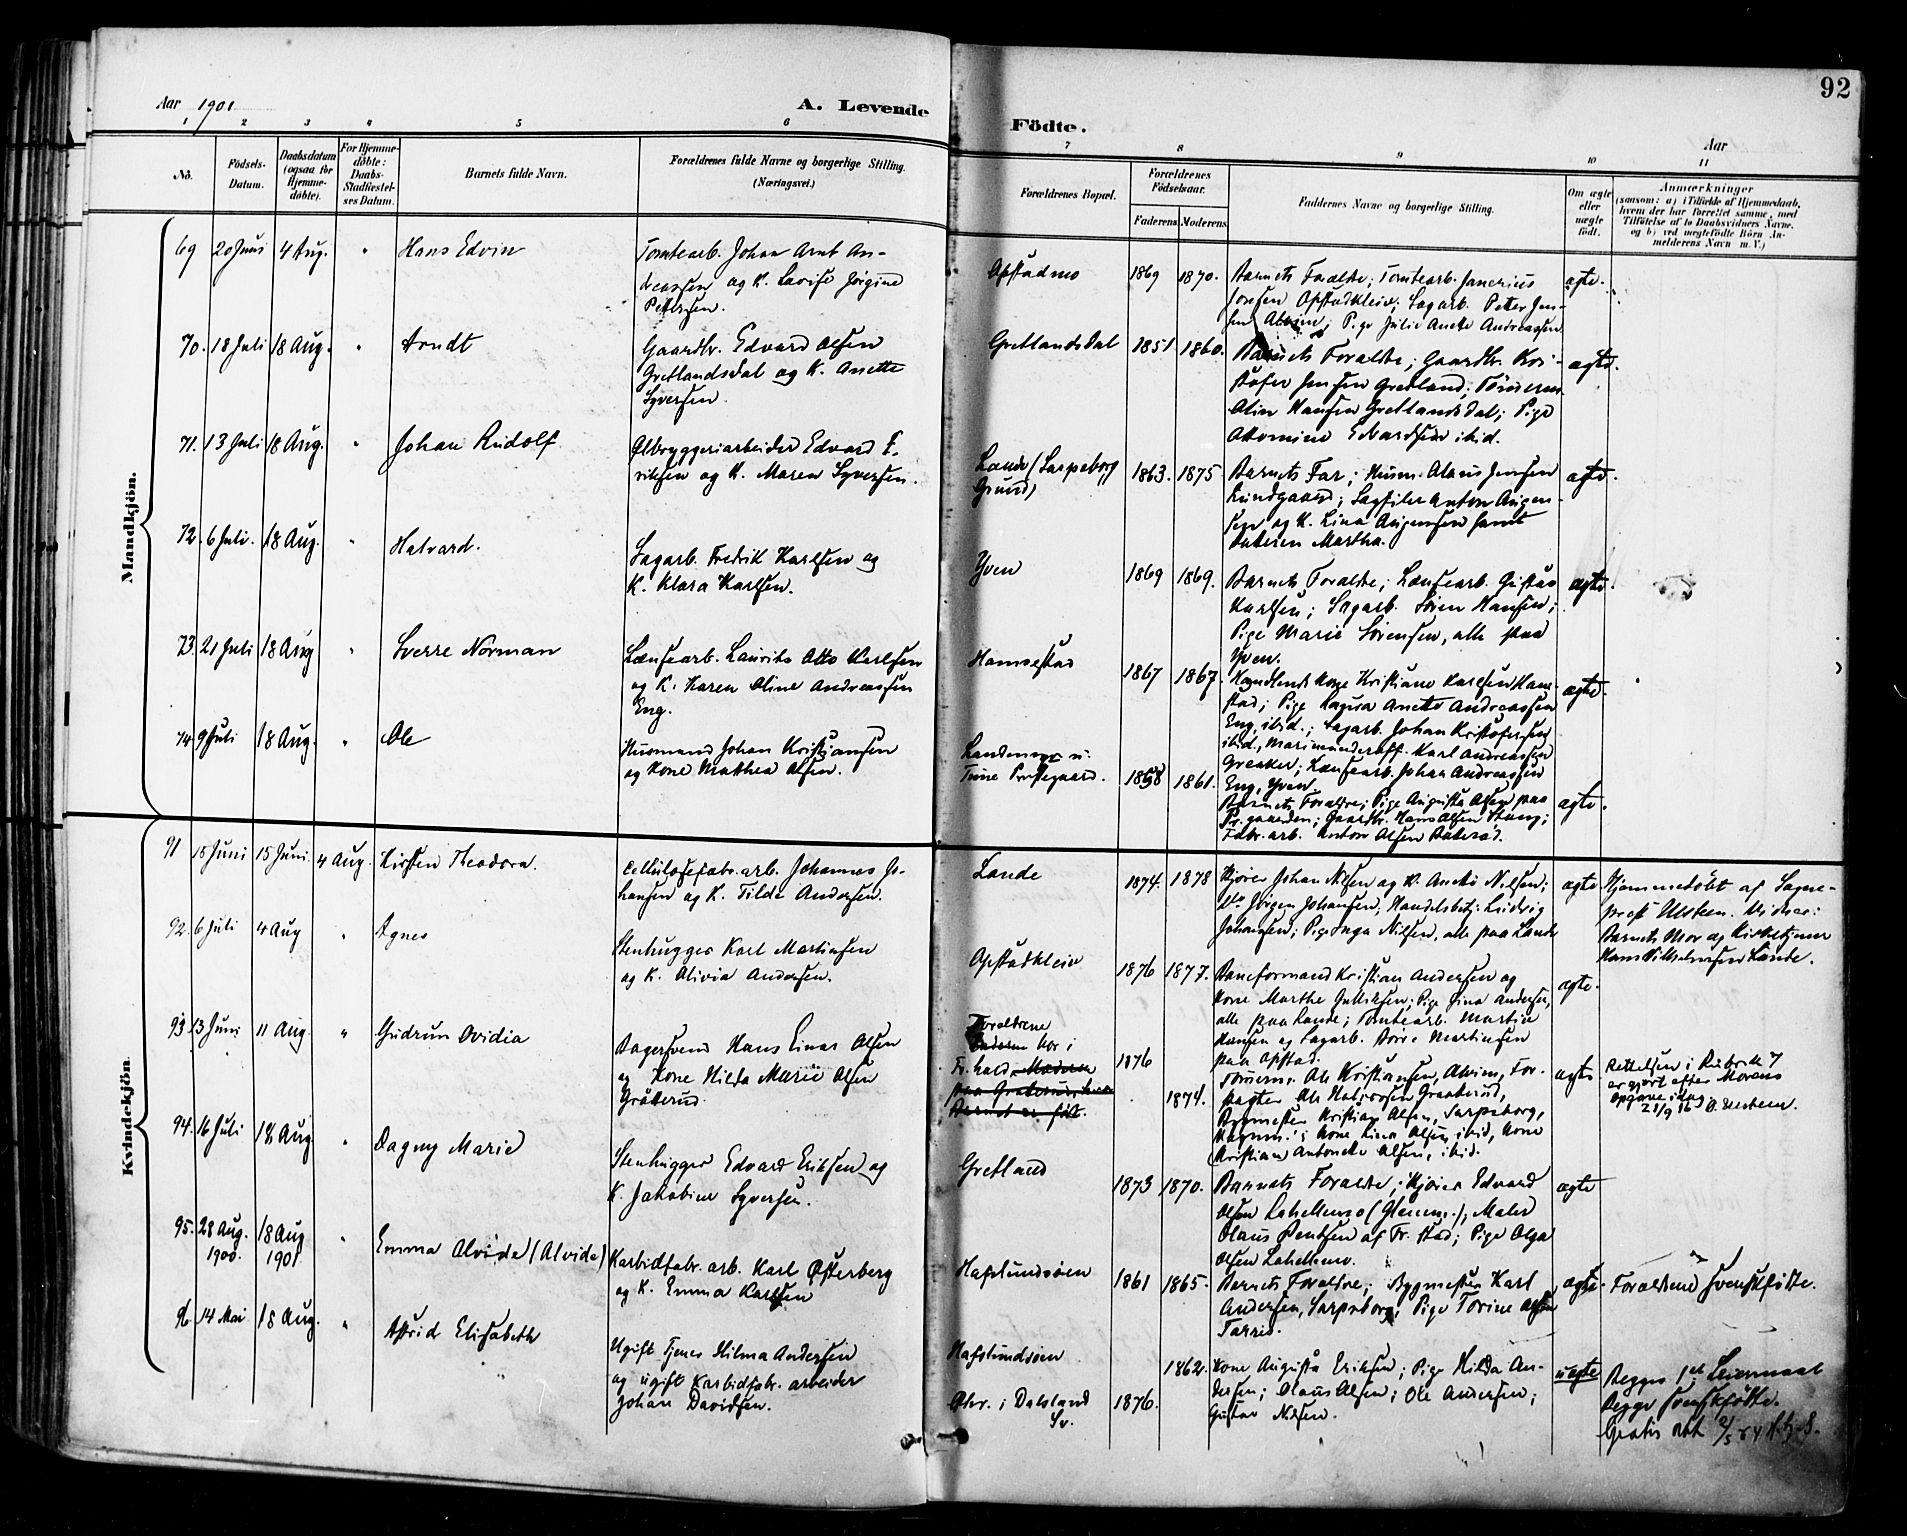 92
Aar 1901
A. Levende
Födte.
Aar
1 2 3 4 5 6 7 8 9 10 11
No.
Födsels-
Datum.
Daabsdatum
(ogsaa for
Hjemme-
döbte).
For Hjemme-
döbte:
Daabs-
Stadfæstel-
ses Datum.
Barnets fulde Navn.
Forældrenes fulde Navne og borgerlige Stilling.
(Næringsvei.)
Forældrenes Bopæl.
Forældrenes
Födselsaar.
Faderens. Moderens.
Faddernes Navne og borgerlige Stilling.
Om ægte
eller
uægte
födt.
Anmærkninger
(saasom: a) i Tilfælde af Hjemmedaab,
hvem der har forrettet samme, med
Tilföielse af to Daabsvidners Navne.
og b) ved uægtefödte Börn An-
melderens Navn m. V.)
Mandkjön.
69 20 Juni 4 Aug. " Hans Edvin
Tomtearb. Johan Arnt An-
dreassen og K. Lovise Jørgine
Pettersen.
Opstadmo 1869 1870.
Barnets Forældre; Tomtearb.
Jensen Opstadkleiv; Sagarb. Petter Jen-
sen Alvim; Pige Julie Andreassen
ægte.
70. 18 Juli 18 Aug. " Arndt
Gaardbr. Edvard Olsen
Gretlandsdal og K. Anette
Syversen.
Gretlandsdal 1851 1860.
Barnets Forældre; Gaardbr. Kri-
stofer Jensen Gretland; Tömmerm.
Hansen Gretlandsdal; Pige
Edvardsen ibid.
ægte.
71. 13 Juli 18 Aug. " Johan Rudolf
Ølbryggeriarbeider Edvard E-
riksen og K. Maren Syversen.
Lande (Sarpsborg
Grund) 1863. 1875
Barnets Far; Husm. Olaus Jensen
Lundgaard; Sagfiler Anton Augen-
sen og K. Lina Augensen samt
Datteren Martha.
ægte.
72. 6 Juli. 18 Aug. " Halvard.
Sagarb. Fredrik Karlsen og
K. Klara Karlsen.
Yven 1869 1869.
Barnets Forældre; Lænsearb. Gustav
Karlsen; Sagarb. Sören Hansen;
Pige Marie Sörensen, alle paa
Yven.
ægte.
73. 21 Juli 18 Aug " Sverre Norman
Lænsearb. Laurits Otto Karlsen
og K. Karen Oline Andreassen
Eng.
1867 1867.
Kristiane Karlsen
Pige Andreassen
Eng, ibid.; Sagarb. Johan Kristofersen
ibid, Karl Andreassen
Greaker; Lænsearb. Johan Andreassen
Eng, Yven.
ægte.
74. 9 Juli 18 Aug. " Ole
Husmand Johan Kristiansen
og Kone Mathea Olsen.
u.
Tune Prestegaard. 1858 1861.
Barnets Forældre; Pige Augusta Olsen paa
Pr.gaarden; Gaardbr. Hans Olsen
Fabr. arb. Anton Olsen
ægte.
Kvindekjön
91 15 Juni 15 Juni. 4 Aug. Kirsten Theodora.
Cellulosefabr. arb. Johannes Jo-
hansen og K. Tilda Andersen.
Lande 1874. 1878
Kjører Johan Nilsen og K. Nilsen;
Jörgen Johansen; Handelsbetj. Ludvig
Johansen; Pige Inga Nilsen, alle paa Lande
ægte
Hjemmedöbt af Sogne-
prest Ulsteen. Vidner:
Barnets Mor og
Lande.
92. 6 Juli 4 Aug " Agnes
Stenhugger Karl Martinsen
og K. Olivia Andersen.
Opstadkleiv 1876 1877.
Baneformand Kristian Andersen og
Kone Marthe Gulliksen; Pige Andersen,
alle paa Lande; Tomtearb. Martin
Hansen og Sagarb. Martinsen
paa Opstad.
ægte.
93 13 Juni 11 Aug. " Gudrun Ovidia
Bagersvend Hans Einar Olsen
og Kone Hilda Marie Olsen
Gråterud.
Forældrene
bor i
Fr. hald.
Barnet er föt.
1876 1874.
Ole Kristiansen, Alvim; For-
pagter Ole
Bygmester Kristian Olsen, Sarpsborg,
Kone Lina Olsen ibid, Kone
Kristian Olsen, ibid.
ægte
Rettelsen i Rubrik 7
er gjort efter Morens
Opgave idag
21/9 16
94. 16 Juli 18 Aug " Dagny Marie
Stenhugger Edvard Eriksen og
K. Jakobine Syversen.
Gretland 1873 1870.
Barnets Forældre; Kjører Edvard
Olsen Lahellemo (Glemm.); Maler
Olaus Bentsen af Fr. stad; Pige Olga
Olsen Lahellemo.
ægte
95. 28 Aug. 1900. 18 Aug 1901 " Emma Alvide (Alvida)
Karbidfabr. arb. Karl Østerberg
og K. Emma Karlsen
Hafslundsöen 1861 1865.
Barnets Forældre; Bygmester Karl
Andersen, Sarpsborg; Pige Torine Olsen
ægte.
Forældrene svenskfödte.
96 14 Mai 18 Aug. " Astrid Elisabeth
Ugift Tjenes Hilma Andersen
og ugift Karbidfabr. arbeider
Johan Davidsen.
Hafslundsöen
Ohr. i Dalsland
Sv.
1876. 1862.
Kone Augusta Eriksen; Pige Hilda An-
dersen; Olaus Olsen; Ole Andersen;
Gustav Nilsen.
uægte
Begges 1ste Leiermaal
Begge svenskfödte.
Gratis att.